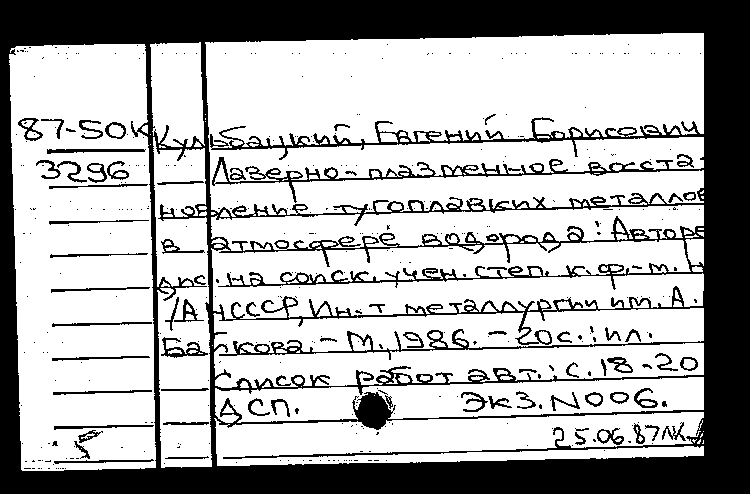 87-50К Кульбацкий, Евгений Борисович
3296 Лазерно-плазменное восста-
новление тугоплавких металлов
в атмосфере водорода: Авторе
дис. на соиск. учен. степ. к.ф.-м. н
/АН СССР, Ин-т металлургии им. А.
Байкова. - М., 1986. - 20с.: ил.
Список работ авт.: с. 18-20
ДСП. Экз. N006.
25.06.87